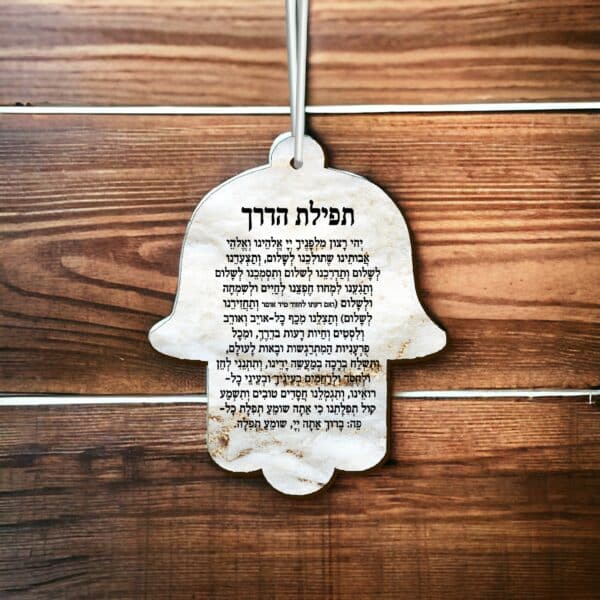 תפילת הדרך
יְהִי רָצוֹן מִלְּפָנֶיךָ יְיָ אֱלֹהֵינוּ וֵאלֹהֵי
אֲבוֹתֵינוּ שֶׁתּוֹלִכֵנוּ לְשָׁלוֹם, וְתַצְעִדֵנוּ
לְשָׁלוֹם וְתַדְרִכֵנוּ לְשלוֹם וְתִסְמְכֵנוּ לְשָׁלוֹם
וְתַגִּעֵנוּ לִמְחוֹז חֶפְצֵנוּ לְחַיִּים וּלְשִׂמְחָה
וּלְשָׁלוֹם (ואם דעתו לחזור מיד אומר וְתַחֲזִירֵנוּ
לְשָׁלוֹם) וְתַצִּלֵנוּ מִכַּף כָּל-אוֹיֵב וְאוֹרֵב
וְלִסְטִים וְחַיּוֹת רָעוֹת בַּדֶּרֶךְ, וּמִכָּל
פֻּרְעָנִיּוֹת הַמִּתְרַגְּשׁוֹת וּבָאוֹת לָעוֹלָם,
וְתִשְׁלַח בְּרָכָה בְּמַעֲשֵׂה יָדֵינוּ, וְתִתְּנֵנִי לְחֵן
וּלְחֶסֶד וּלְרַחֲמִים בְּעֵינֶיךָ וּבְעֵינֵי כָל-
רוֹאֵינוּ, וְתִגְמְלֵנוּ חֲסָדִים טוֹבִים וְתִשְׁמַע
קוֹל תְּפִלָּתֵנוּ כִּי אַתָּה שׁוֹמֵעַ תְּפִלַּת כָּל-
פֶּה: בָּרוּךְ אַתָּה יְיָ, שׁוֹמֵעַ תְּפִלָּה.